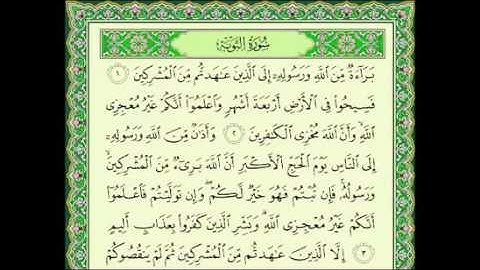 سُورَةُ التَّوْبَةِ
بَرَآءَةٌ مِّنَ ٱللَّهِ وَرَسُولِهِۦٓ إِلَى ٱلَّذِينَ عَٰهَدتُّم مِّنَ ٱلْمُشْرِكِينَ ١
فَسِيحُوا۟ فِى ٱلْأَرْضِ أَرْبَعَةَ أَشْهُرٍ وَٱعْلَمُوٓا۟ أَنَّكُمْ غَيْرُ مُعْجِزِى
ٱللَّهِ وَأَنَّ ٱللَّهَ مُخْزِى ٱلْكَٰفِرِينَ ٢ وَأَذَٰنٌ مِّنَ ٱللَّهِ وَرَسُولِهِۦٓ
إِلَى ٱلنَّاسِ يَوْمَ ٱلْحَجِّ ٱلْأَكْبَرِ أَنَّ ٱللَّهَ بَرِىٓءٌ مِّنَ ٱلْمُشْرِكِينَ
وَرَسُولُهُۥ فَإِن تُبْتُمْ فَهُوَ خَيْرٌ لَّكُمْ وَإِن تَوَلَّيْتُمْ فَٱعْلَمُوٓا۟
أَنَّكُمْ غَيْرُ مُعْجِزِى ٱللَّهِ وَبَشِّرِ ٱلَّذِينَ كَفَرُوا۟ بِعَذَابٍ أَلِيمٍ
٣ إِلَّا ٱلَّذِينَ عَٰهَدتُّم مِّنَ ٱلْمُشْرِكِينَ ثُمَّ لَمْ يَنقُصُوكُمْ